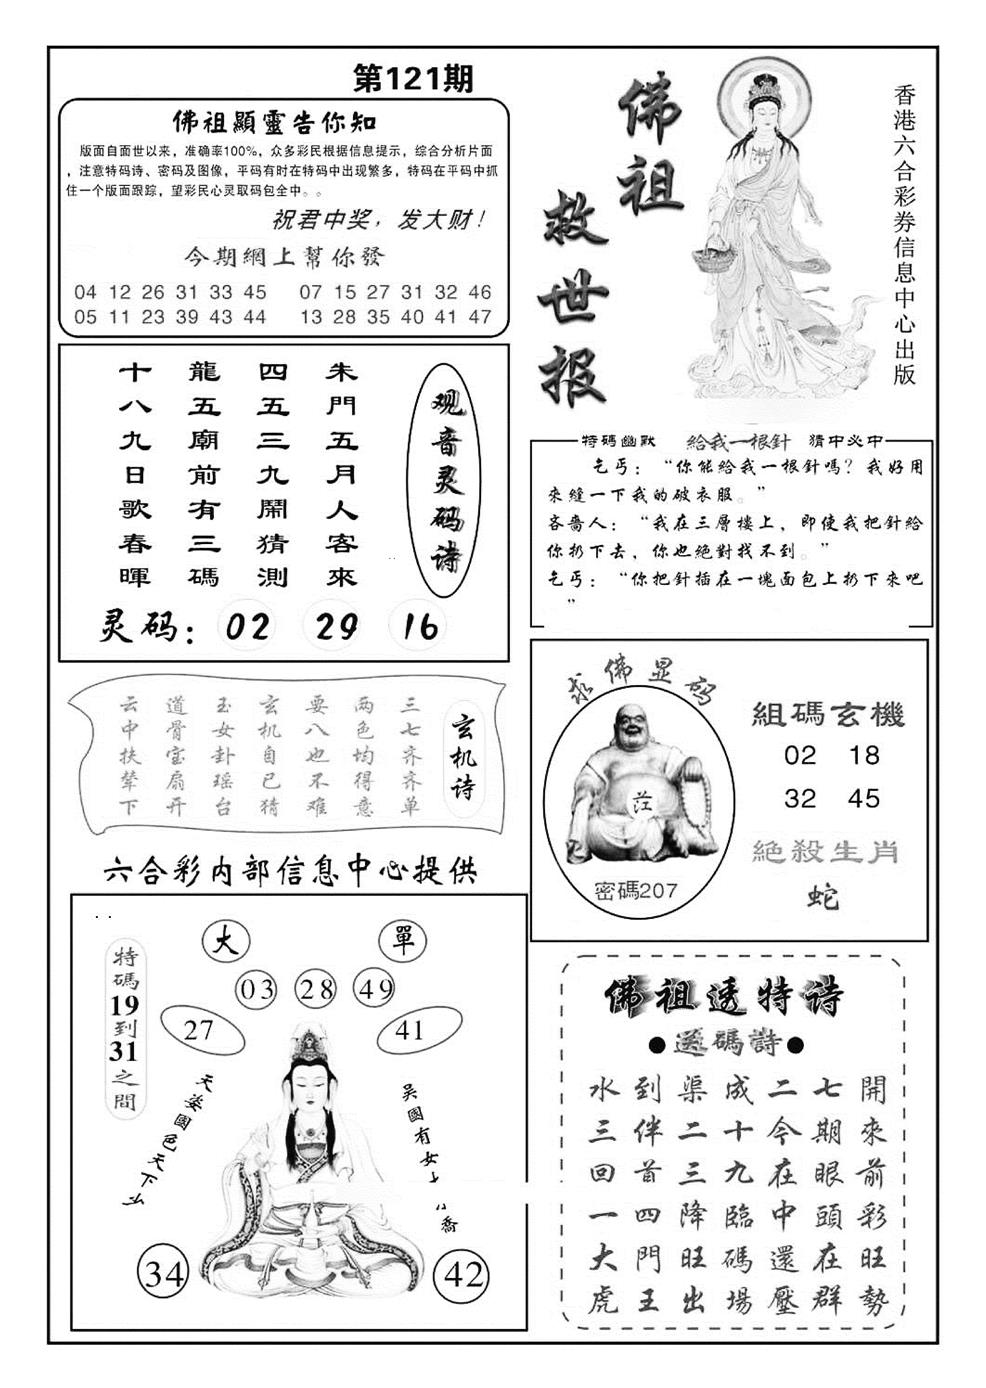 第121期
佛祖顯靈告你知
版面自面世以来，准确率100%，众多彩民根据信息提示，综合分析片面
，注意特码诗、密码及图像，平码有时在特码中出现繁多，特码在平码中抓
住一个版面跟踪，望彩民心灵取码包全中。。
祝君中奖，发大财！
今期網上幫你發
04 12 26 31 33 45 07 15 27 31 32 46
05 11 23 39 43 44 13 28 35 40 41 47
佛祖
救世报
香港六合彩券信息中心出版
观音灵码诗
朱門五月人客來
四五三九鬧猜測
龍五廟前有三碼
十八九日歌春暉
灵码：02 29 16
特碼幽默 給我一根針 猜中必中
乞丐：“你能給我一根針嗎？我好用
來縫一下我的破衣服。”
吝嗇人：“我在三層樓上，即使我把針給
你扔下去，你也絕對找不到。”
乞丐：“你把針插在一塊面包上扔下來吧
”
玄机诗
三七齐齐单
两色均得意
要八也不难
玄机自已猜
玉女卦瑶台
道骨宝扇开
云中扶辇下
求佛显码
密碼207
組碼玄機
02 18
32 45
絕殺生肖
蛇
六合彩内部信息中心提供
特碼19到31之間
大 單
03 28 49
27 41
天姿國色天下
吴國有女
喬
34 42
佛祖透特诗
碼詩
水到渠成二七開
三伴二十今期來
回首三九在眼前
一四降臨中頭彩
大門旺碼還在旺
虎王出場壓群勢